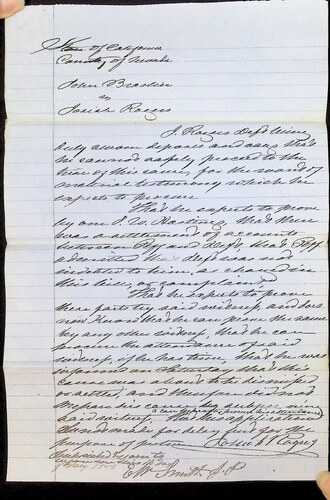 State of California
County of Nevada
John Braslin
vs
Josiah Rogers
J. Rogers Deft being
duly sworn deposes and says that
he cannot safely proceed to the
trial of this cause, for the want of
material testimony which he
expects to procure
That he expects to prove
by one J. W. that there
was a settlement of accounts
between Plff and Deft, that Plff
admitted that deft was not
indebted to him, as charged in
this bill, or complaint
That he expects to prove
these facts by said witness, and does
not know that he can prove the same
by any other witness that he can
procure the attendance of said
witness, if he has time, that he was
informed on Saturday that this
cause was about to be dismissed
or settled, and therefore did not
said witness That this application
is not made for delay only for the
purpose of justice Josiah Rogers
Subscribed & sworn to
Smith J.P.